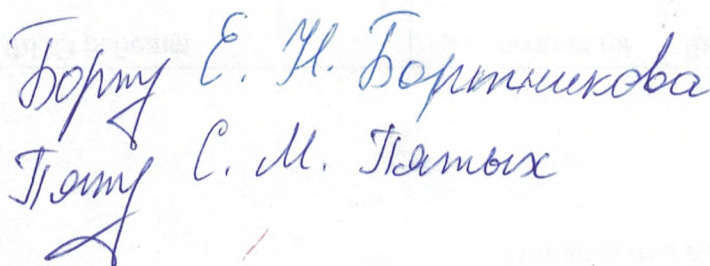 Борту Е. Н. Бортникова
Пяту С. М. Пятых